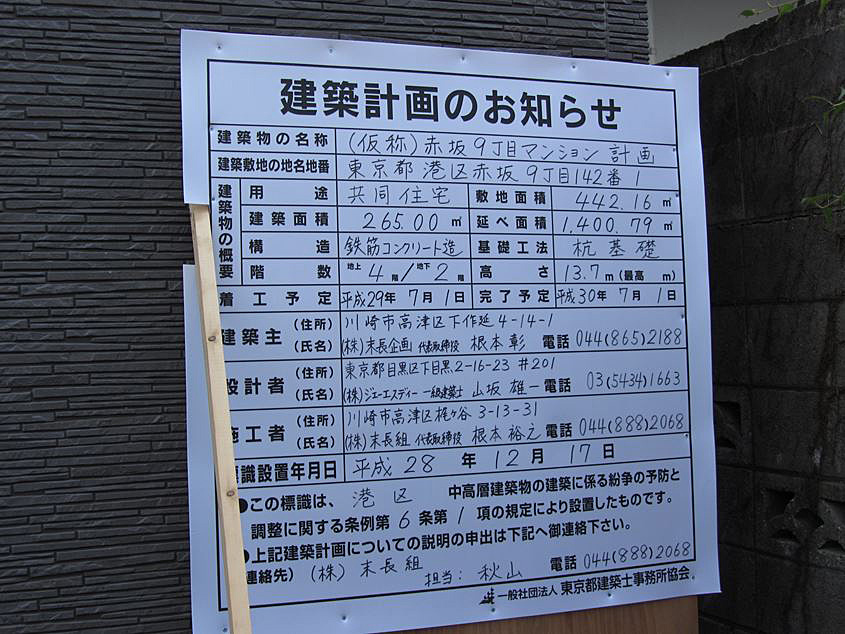 建築計画のお知らせ
建築物の名称 (仮称)赤坂9丁目マンション計画
建築敷地の地名地番 東京都港区赤坂9丁目142番1
建築物の概要
用途 共同住宅 敷地面積 442.16㎡
建築面積 265.00㎡ 延べ面積 1,400.79㎡
構造 鉄筋コンクリート造 基礎工法 杭基礎
階数 地上4階/地下2階 高さ 13.7m(最高 m)
着工予定 平成29年7月1日 完了予定 平成30年7月1日
建築主 (住所) 川崎市高津区下作延4-14-1
(氏名) (株)末長企画 代表取締役 根本彰 電話 044(865)2188
設計者 (住所) 東京都目黒区下目黒2-16-23 #201
(氏名) (株)ジェーエスディー 一級建築士 山坂雄一 電話 03(5434)1663
施工者 (住所) 川崎市高津区梶ヶ谷3-13-31
(氏名) (株)末長組 代表取締役 根本裕之 電話 044(888)2068
標識設置年月日 平成28年12月17日
●この標識は、港区 中高層建築物の建築に係る紛争の予防と
調整に関する条例第6条第1項の規定により設置したものです。
●上記建築計画についての説明の申出は下記へ御連絡下さい。
連絡先) (株)末長組 担当:秋山 電話 044(888)2068
一般社団法人 東京都建築士事務所協会